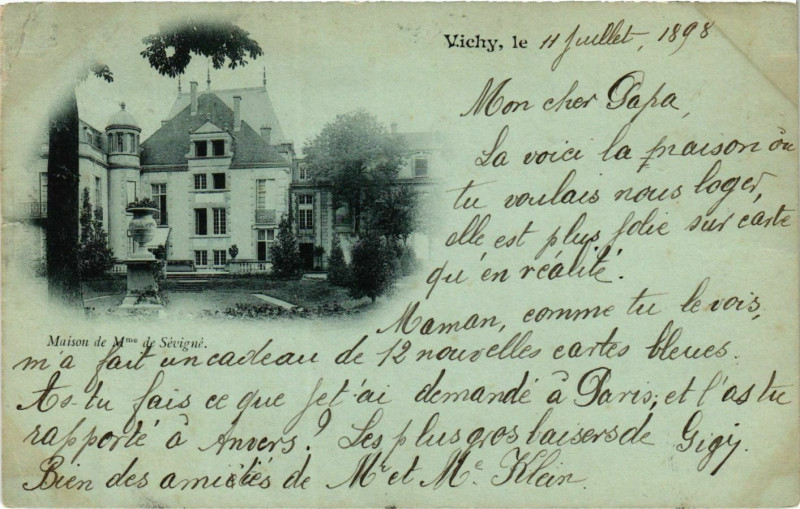 Vichy, le 11 Juillet, 1898
Mon cher Papa,
La voici la maison où
tu voulais nous loger,
elle est plus jolie sur carte
qu'en réalité.
Maman, comme tu le vois,
Maison de Mme de Sévigné.
m'a fait un cadeau de 12 nouvelles cartes bleues.
As-tu fais ce que je t'ai demandé à Paris, et l'as tu
rapporté à Anvers? Les plus gros baisers de Gigy.
Bien des amitiés de Mr et Me Klein.